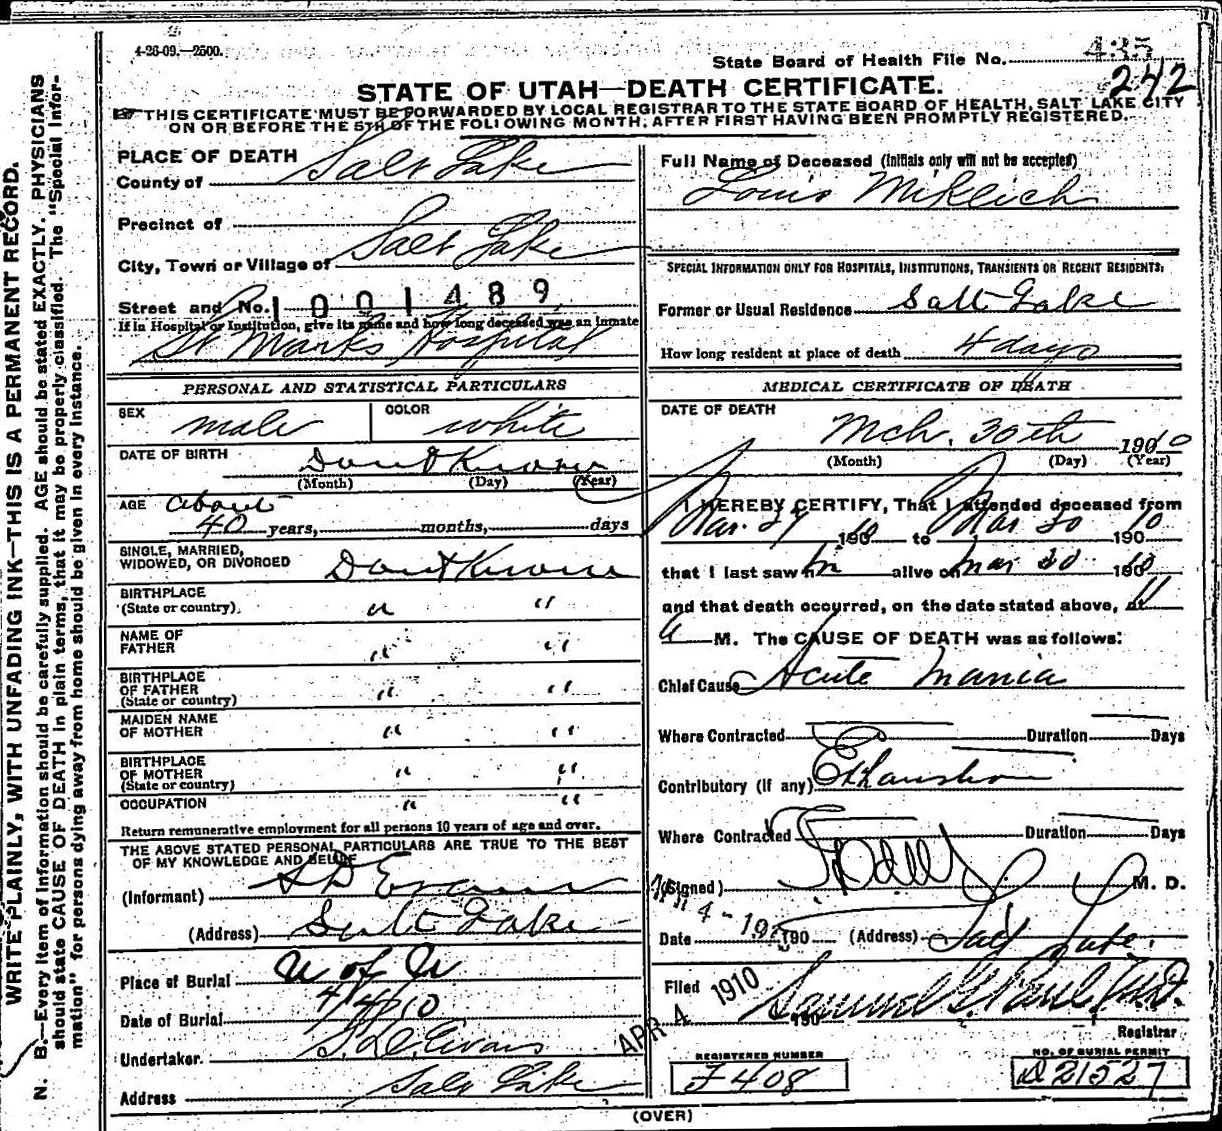 4-26-09.—2500.
State Board of Health File No. 435
242
STATE OF UTAH—DEATH CERTIFICATE.
THIS CERTIFICATE MUST BE FORWARDED BY LOCAL REGISTRAR TO THE STATE BOARD OF HEALTH, SALT LAKE CITY
ON OR BEFORE THE 5TH OF THE FOLLOWING MONTH, AFTER FIRST HAVING BEEN PROMPTLY REGISTERED.
WRITE PLAINLY, WITH UNFADING INK—THIS IS A PERMANENT RECORD.
N. B.—Every item of information should be carefully supplied. AGE should be stated EXACTLY. PHYSICIANS
should state CAUSE OF DEATH in plain terms, that it may be properly classified. The "Special Infor-
mation" for persons dying away from home should be given in every instance.
PLACE OF DEATH
County of Salt Lake
Precinct of
City, Town or Village of Salt Lake
Street and No. 1001489
If in Hospital or Institution, give its name and how long deceased was an inmate
St Marks Hospital
PERSONAL AND STATISTICAL PARTICULARS
SEX male
COLOR white
DATE OF BIRTH Dont Know
(Month) (Day) (Year)
AGE about
40 years, months, days
SINGLE, MARRIED,
WIDOWED, OR DIVORCED Dont Know
BIRTHPLACE
(State or country) " "
NAME OF
FATHER " "
BIRTHPLACE
OF FATHER " "
(State or country)
MAIDEN NAME
OF MOTHER " "
BIRTHPLACE
OF MOTHER " "
(State or country)
OCCUPATION " "
Return remunerative employment for all persons 10 years of age and over.
THE ABOVE STATED PERSONAL PARTICULARS ARE TRUE TO THE BEST
OF MY KNOWLEDGE AND BELIEF
(Informant) S D Evans
(Address) Salt Lake
Place of Burial U of U
Date of Burial 4/4/10
Undertaker. S. D. Evans
Address Salt Lake
Full Name of Deceased (Initials only will not be accepted)
Louis Miklich
SPECIAL INFORMATION ONLY FOR HOSPITALS, INSTITUTIONS, TRANSIENTS OR RECENT RESIDENTS:
Former or Usual Residence Salt Lake
How long resident at place of death 4 days
MEDICAL CERTIFICATE OF DEATH
DATE OF DEATH
Mch. 30th 1910
(Month) (Day) (Year)
I HEREBY CERTIFY, That I attended deceased from
Mar. 27 1910 to Mar 30 1910
that I last saw him alive on Mar 30 1910
and that death occurred, on the date stated above, at 11
A M. The CAUSE OF DEATH was as follows:
Chief Cause Acute Mania
Where Contracted Duration Days
Contributory (if any) Exhaustion
Where Contracted Duration Days
(Signed) M. D.
Date 190 (Address) Salt Lake.
Filed APR 4 1910 Samuel G. Paul, M.D.
190 Registrar
REGISTERED NUMBER
F408
NO. OF BURIAL PERMIT
D21527
(OVER)